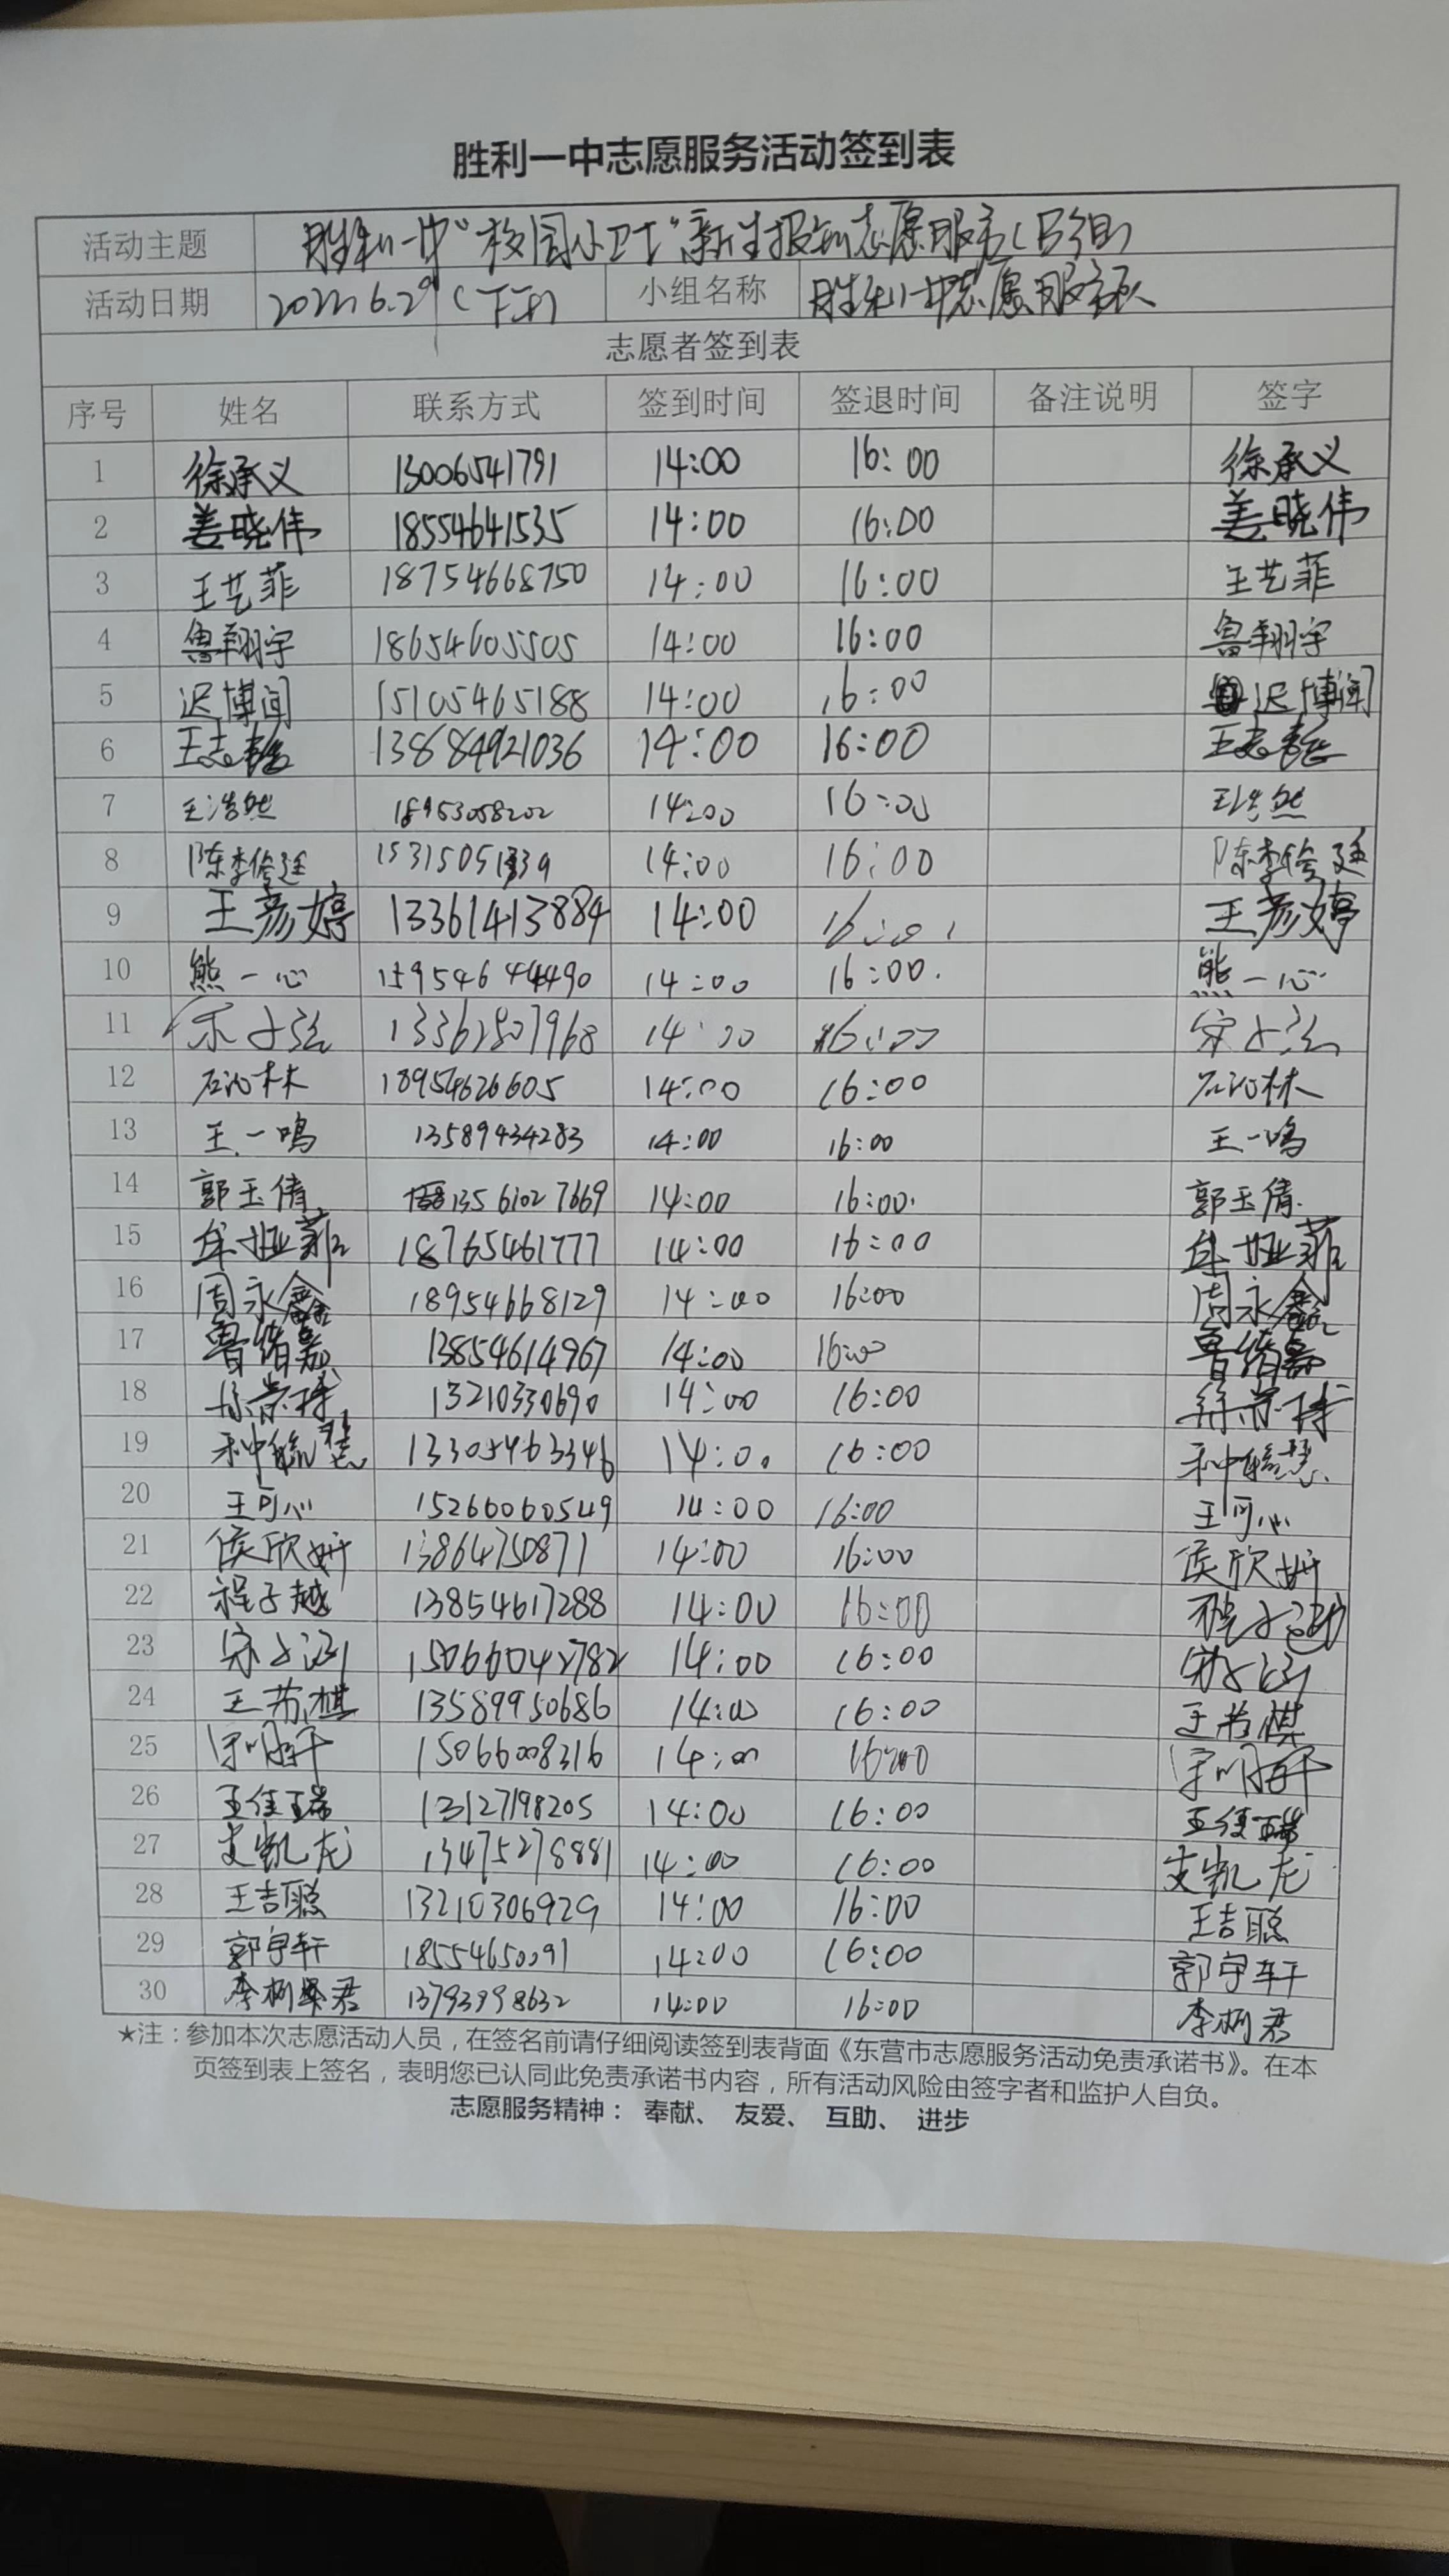 胜利一中志愿服务活动签到表
活动主题 胜利一中"校园小卫士"新生报到志愿服务(B组)
活动日期 2022.6.29(下午) 小组名称 胜利一中志愿服务队
志愿者签到表
序号 姓名 联系方式 签到时间 签退时间 备注说明 签字
1 徐承义 13006541791 14:00 16:00 徐承义
2 姜晓伟 18554641535 14:00 16:00 姜晓伟
3 王艺菲 18754668750 14:00 16:00 王艺菲
4 鲁翔宇 18654605505 14:00 16:00 鲁翔宇
5 迟博闻 15105465188 14:00 16:00 迟博闻
6 王志 13684921036 14:00 16:00 王志
7 王浩然 18953058202 14:00 16:00 王浩然
8 陈李 14:00 16:00 陈李
9 王彦婷 13361413884 14:00 16:00 王彦婷
10 熊一心 15954644490 14:00 16:00. 熊一心
11 宋子弘 14:00 16:00 宋子弘
12 石沁林 18954626605 14:00 16:00 石沁林
13 王一鸣 13589434283 14:00 16:00 王一鸣
14 郭玉倩 13561027669 14:00 16:00. 郭玉倩
15 牟娅菲 18765461777 14:00 16:00 牟娅菲
16 周永鑫 18954668129 14:00 16:00 周永鑫
17 鲁绪嘉 13854614967 14:00 16:00 鲁绪嘉
18 13210330690 14:00 16:00
19 种毓慧 13305463346 14:00 16:00 种毓慧
20 王可心 15266060549 14:00 16:00 王可心
21 侯欣妍 13864750871 14:00 16:00 侯欣妍
22 程子越 13854617288 14:00 16:00 程子越
23 宋子涵 15066042782 14:00 16:00 宋子涵
24 王若棋 13589950686 14:00 16:00 王若棋
25 15066008316 14:00 16:00
26 王佳瑞 13127198205 14:00 16:00 王佳瑞
27 支凯龙 13475278881 14:00 16:00 支凯龙
28 王吉聪 13210306929 14:00 16:00 王吉聪
29 郭宇轩 18554650091 14:00 16:00 郭宇轩
30 李树君 13793998632 14:00 16:00 李树君
★注：参加本次志愿活动人员，在签名前请仔细阅读签到表背面《东营市志愿服务活动免责承诺书》。在本
页签到表上签名，表明您已认同此免责承诺书内容，所有活动风险由签字者和监护人自负。
志愿服务精神： 奉献、 友爱、 互助、 进步